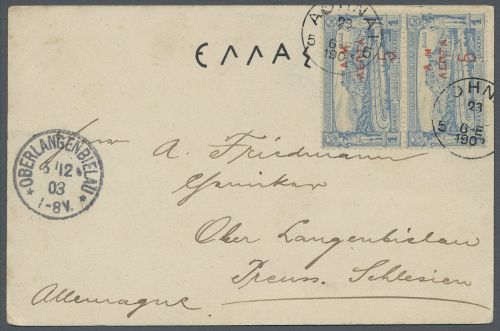 ΕΛΛΑΣ
ΑΘΗΝΑΙ
23
5 6-Ε 5
190
Α Μ
ΛΕΠΤΑ
5
1
Α Μ
ΛΕΠΤΑ
5
1
23
5 6-Ε
190
OBERLANGENBIELAU
5 12
03
7-8V.
Herrn A. Friedmann
Chemiker
Ober Langenbielau
Preuss. Schlesien
Allemagne